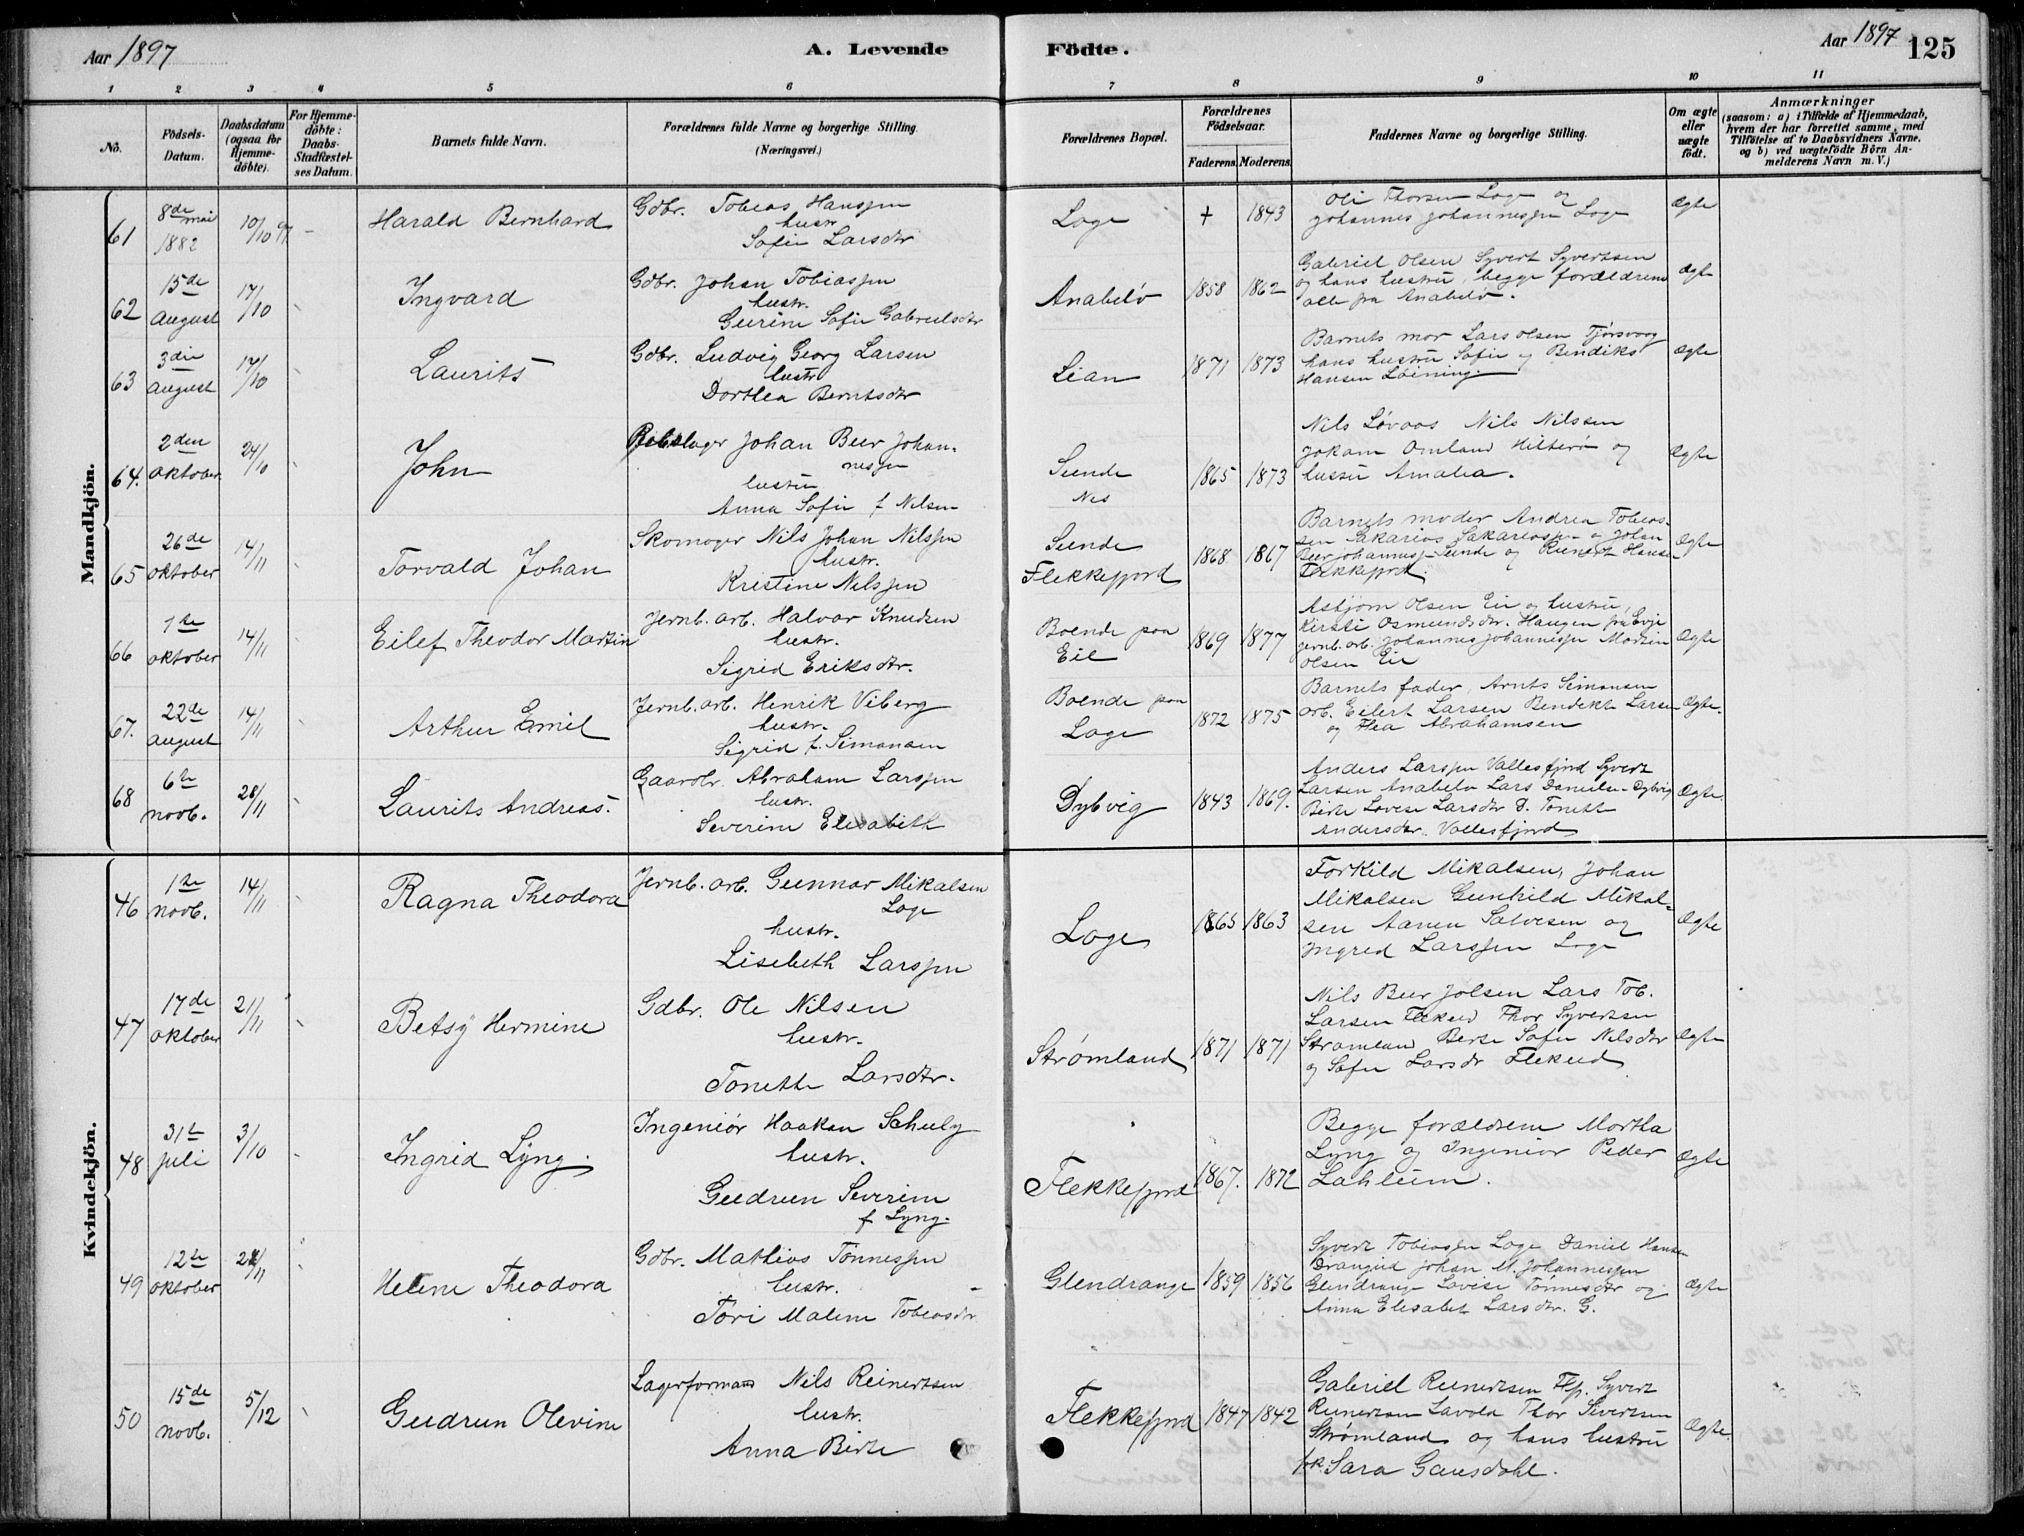 Aar 1897
A. Levende
Födte.
Aar 1897
125
1 2 3 4 5 6 7 8 9 10 11
No.
Födsels-
Datum.
Daabsdatum
(ogsaa for
Hjemme-
döbte).
For Hjemme-
döbte:
Daabs-
Stadfæstel-
ses Datum.
Barnets fulde Navn.
Forældrenes fulde Navne og borgerlige Stilling.
(Næringsvei.)
Forældrenes Bopæl.
Forældrenes
Födselsaar.
Faderens. Moderens.
Faddernes Navne og borgerlige Stilling.
Om ægte
eller
uægte
födt.
Anmærkninger
(saasom: a) i Tilfælde af Hjemmedaab,
hvem der har forrettet samme, med
Tilföielse af to Daabsvidners Navne,
og b) ved uægtefödte Börn An-
melderens Navn m. V.)
Mandkjön.
61
8de mai
1882
10/10 97
Harald Bernhard
Gdbr. Tobias Hanssen
hustr.
Sofie Larsdtr
Loge
+ 1843
Oli Thorsen Loge og
Johannes Johannessen Loge
Ægte
62
15de
August
17/10
Ingvard
Gdbr. Johan Tobiassen
hustr.
Gurine Sofie Gabrielsdtr
Anabelø
1858 1862
Gabriel Olsen Syvert Syvertsen
og hans hustru, begge forældrene
alle fra Anabelø.
Ægte
63
3die
August
17/10
Laurits
Gdbr. Ludvig Georg Larsen
hustr
Dorthea Berntsdtr
Lian
1871 1873
Barnets mor Lars Olsen Tjørsvaag
hans hustru Sofie og Bendiks
Hansen Løining.
Ægte
64.
2den
Oktober
24/10
John
Rebslager Johan Beer Johan-
nessen
hustru
Anna Sofie f Nilsen
Sunde
Nes
1865 1873
Nils Løvaas Nils Nilssen
Jokam Omland Hitterø og
hustru Amalia.
Ægte
65
26de
Oktober
14/11
Torvald Johan
Skomager Nils Johan Nilssen
hustr.
Kristine Nilssen
Sunde
Flekkefjord
1868 1867
Barnets moder Andrea Tobias-
sen Sakarias Sakariassen og Johan
Beer Johanness. Sunde og Hansen
Flekkefjord.
Ægte
66
1te
Oktober
14/11
Eilef Theodor Martin
Jernb. arb. Halvor Knudsen
hustr.
Sigrid Eriksdtr.
Boende paa
Eie
1869 1877
Asbjørn Olsen Eie og hustru,
Kirsti Osmundsdtr. Haugen fra Evje
jernb. arb. Johannes Johannessen Martin
Olsen Eie
Ægte
67.
22de
August
14/11
Arthur Emil
Jernb. arb. Henrik Viberg
hustr.
Sigrid f. Simonsen
Boende paa
Loge
1872 1875
Barnets fader, Arnts Simonsen
arb. Eilert Larsen Bendikt Larsen
og Thea Abrahamsen
Ægte.
68
6te
Novb.
28/11
Laurits Andreas.
Gaardbr. Abraham Larssen
hustr.
Severine Elisabeth
Dybvig
1843 1869.
Anders Larssen Vallesfjord Syvert
Larsen Anabelø Lars Danielsen Dybvig
Birte Lovise Larsdtr D. Tonette
Andersdtr. Vallesfjord
Ægte.
Kvindekjön.
46
1te
Novb.
14/11
Ragna Theodora
Jernb. arb. Gunnar Mikalsen
Loge
hustr.
Lisebeth Larssen
Loge
1865 1863
Torkild Mikalsen, Johan
Mikalsen Gunhild Mikal-
sen Aanen Salvesen og
Ingrid Larssen Loge
Ægte
47
17de
Oktober
21/11
Betsy Hermine
Gdbr. Ole Nilsen
hustr.
Tonette Larsdtr.
Strømland
1871 1871
Nils Beer Jolsen Lars Tob.
Larsen Flikeid Thor Syvertsen
Strømland Berte Sofie Nilsdtr
og Sofie Larsdr Flekeid
Ægte
48
31te
Juli
3/10
Ingrid Lyng.
Ingeniør Haakon Schulz
hustr.
Gudrun Severine
f Lyng.
Flekkefjord
1867. 1872
Begge forældrene Martha
Lyng og Ingeniør Peder
Lahlum.
Ægte
49
12te
Oktober
21/11
Helene Theodora
Gdbr. Mathias Tønnessen
hustr.
Tori Maline Tobiasdtr
Glendrange
1859 1856
Syvert Tobiassen Loge Daniel Hansen
Drangeid Johan M. Johannessen
Glendrange Lovise Tønnesdtr og
Anna Elisabet Larsdtr. G.
Ægte
50
15de
Novb.
5/12
Gudrun Olevine
Lagerformand Nils Reinertsen
hustr.
Anna Birte
Flekkefjord
1847 1842
Gabriel Reinertsen Flf. Syvert
Reinertsen Lavold Thor Sivertsen
Strømland og hans hustru
frk. Sara Gausdahl.
Ægte.